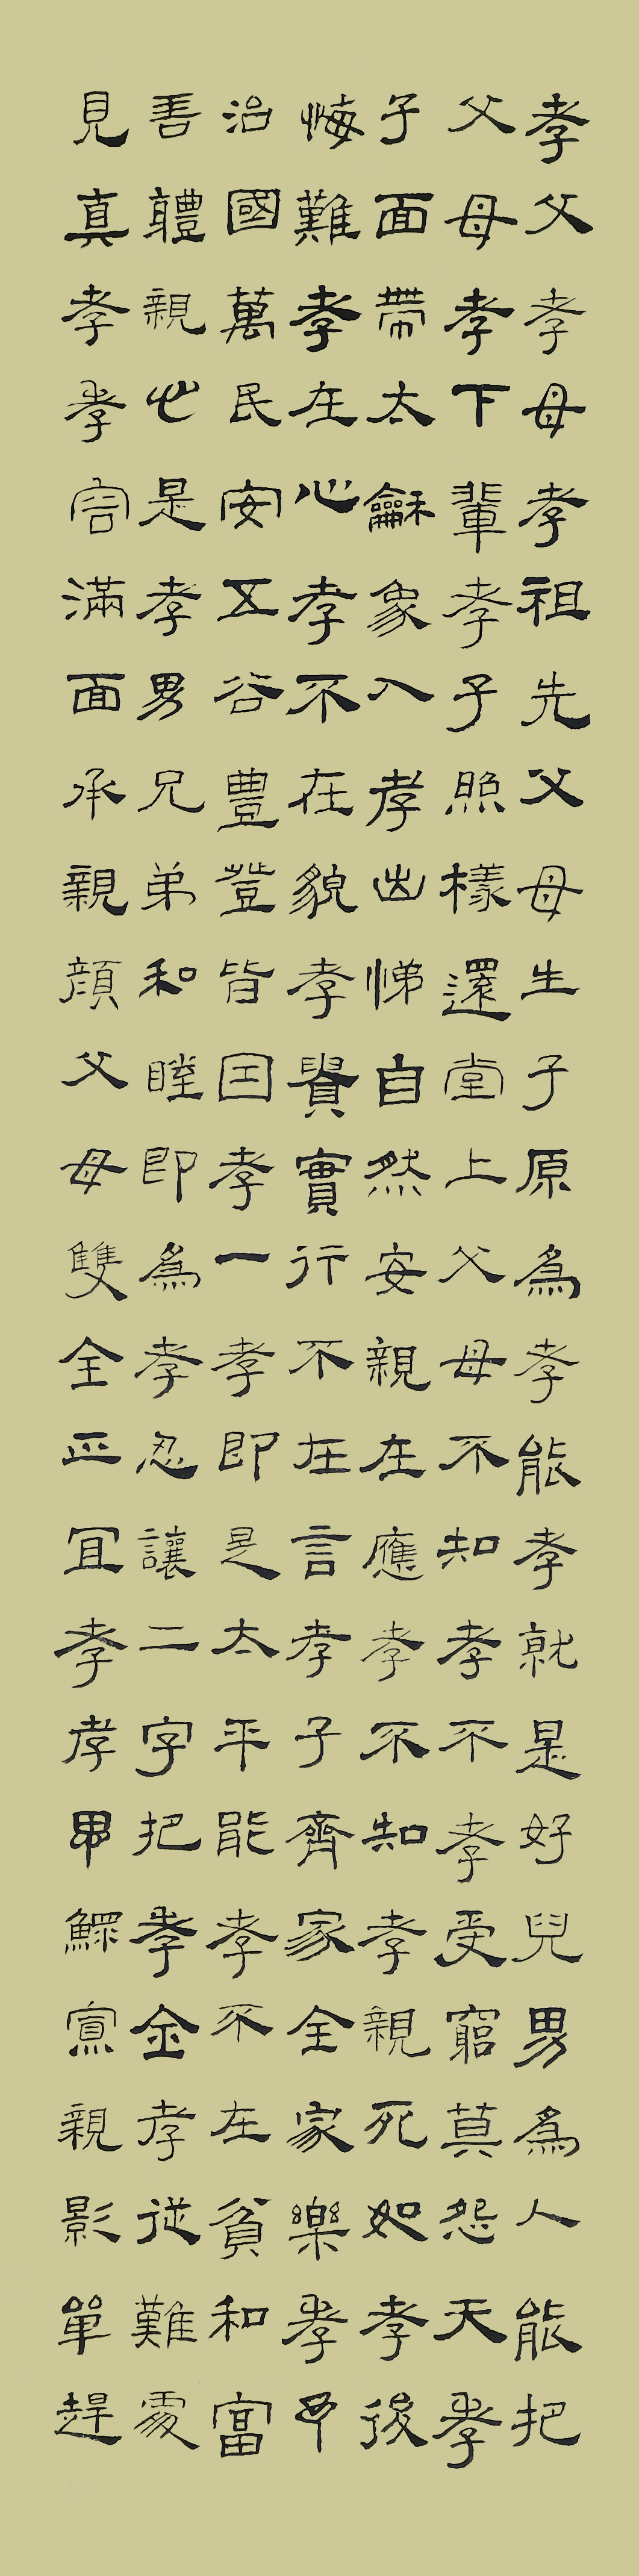 孝父孝母孝祖先父母生子原為孝能孝就是好兒男為人能把
父母孝下輩孝子照樣還堂上父母不知孝不孝受窮莫怨天孝
子面帶太龢象入孝出悌自然安親在應孝不知孝親死如孝後
悔難孝在心孝不在貌孝貴實行不在言孝子齊家全家樂孝子
治國萬民安五谷豐登皆因孝一孝即是太平能孝不在貧和富
善體親心是孝男兄弟和睦即為孝忍讓二字把孝全孝從難處
見真孝孝容滿面承親顏父母雙全正宜孝孝思鰥寡親影單趕